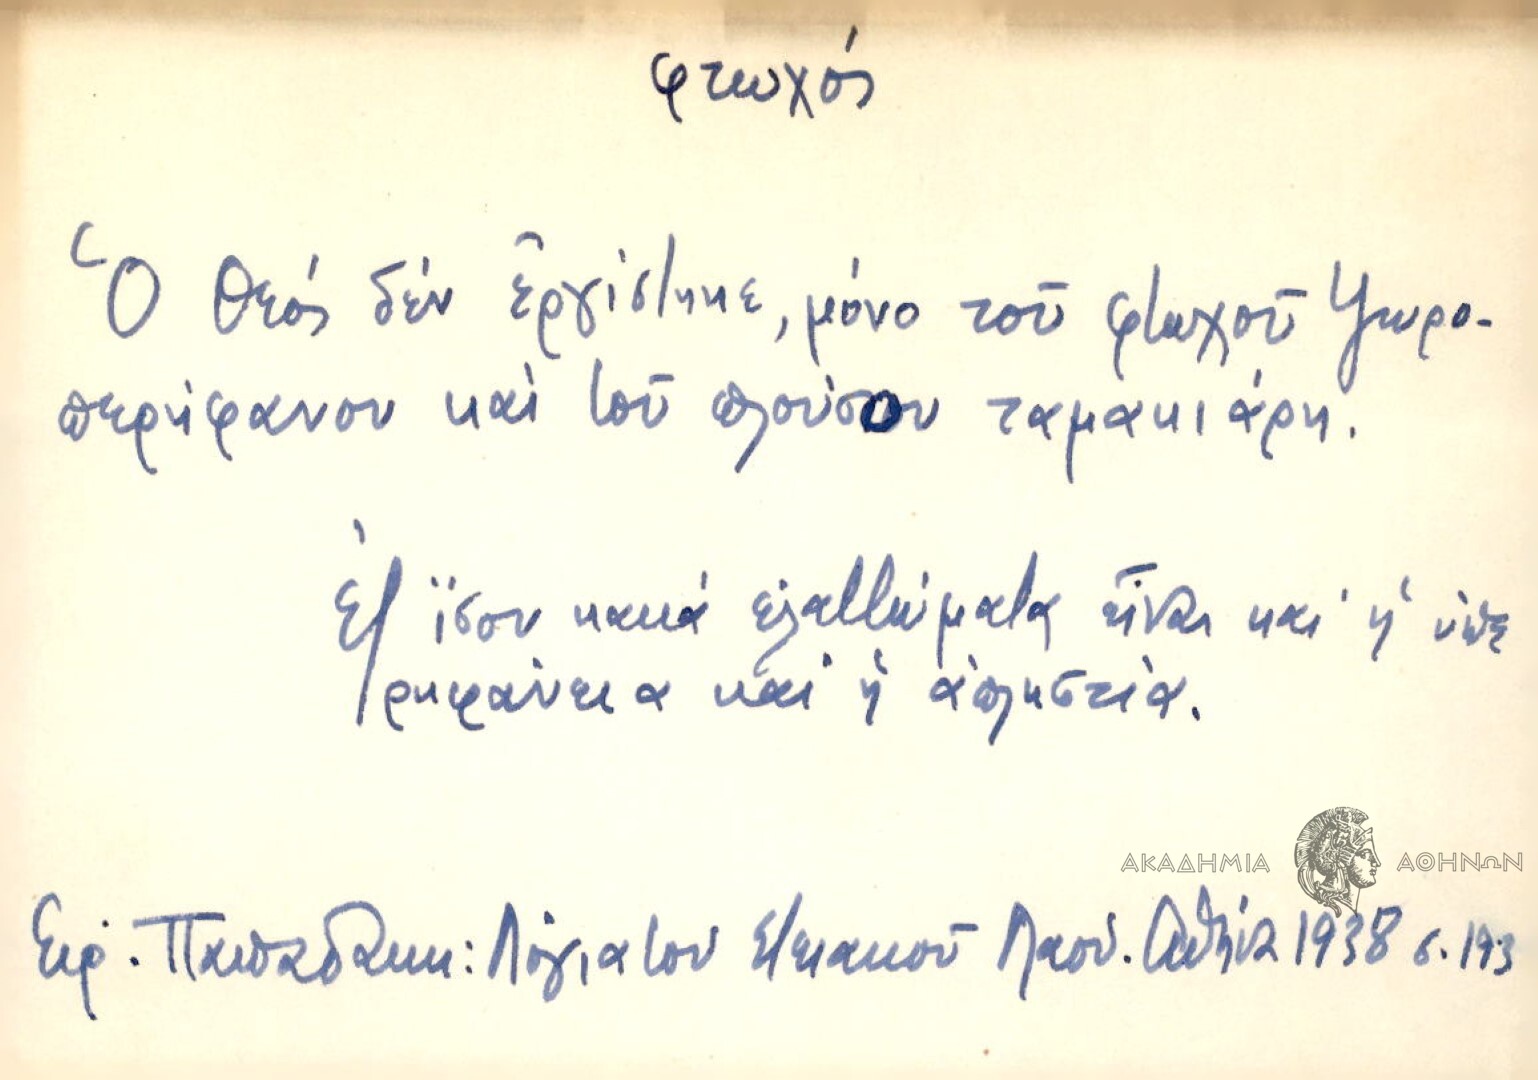 φτωχός
Ὁ Θεός δέν ἐργίστηκε, μόνο τοῦ φτωχοῦ ψωρο-
περήφανου καί τοῦ πλούσου ταμακιάρη.
Ἐξ ἴσου κακά ελαττώματα εἶναι καί ἡ ὑπε
ρηφάνεια καί ἡ ἀπληστία.
Ειρ. Παπαδακη: Λόγια τοῦ Στειακοῦ Λαοῦ. Αθήνα 1938 σ. 193
ΑΚΑΔΗΜΙΑ ΑΘΗΝΩΝ